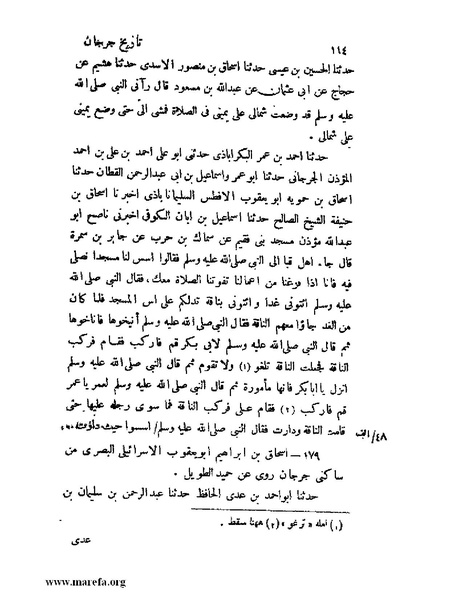 ١١٤
تاريخ جرجان
حدثنا الحسين بن عيسى حدثنا اسحاق بن منصور الاسدى حدثنا هشيم عن
حجاج عن ابى عثمان عن عبدالله بن مسعود قال رآنى النبى صلى الله
عليه وسلم قد وضعت شمالى على يمينى فى الصلاة فشى الىّ حتى وضع يمينى
على شمالى .
حدثنا احمد بن عمر البكراباذى حدثنى ابو على احمد بن على بن احمد
المؤذن الجرجانى حدثنا ابو عمر واسماعيل بن ابى عبدالرحمن القطان حدثنا
اسحاق بن حمويه ابو يعقوب الافطس السليماناباذى اخبرنا اسحاق بن
حنيفة الشيخ الصالح حدثنا اسماعيل بن ابان الكوفى اخبرنى ناصح ابو
عبدالله مؤذن مسجد بنى فقيم عن سماك بن حرب عن جابر بن سمرة
قال جاء اهل قبا الى النبى صلى الله عليه وسلم فقالوا اسس لنا مسجدا نصلى
فيه فانا اذا فرغنا من اعمالنا تفوتنا الصلاة معك، فقال النبى صلى الله
عليه وسلم ائتونى غدا و ائتونى بناقة تدلكم على اس المسجد فلما كان
من الغد جاؤا معهم الناقة فقال النبى صلى الله عليه وسلم أنيخوها فاناخوها
ثم قال النبى صلى الله عليه وسلم لابى بكر قم فاركب فقام فركب
الناقة فجعلت الناقة تلغو (١) ولا تقوم ثم قال النبى صلى الله عليه وسلم
انزل يا ابا بكر فانها مأمورة ثم قال النبى صلى الله عليه وسلم لعمر يا عمر
قم فاركب (٢) فقام على فركب الناقة فما سوى رجله عليها حتى
قامت الناقة ودارت فقال النبى صلى الله عليه وسلم/ اسسوا حيث دارت ٤٨/ الف
١٧٩ — اسحاق بن ابراهيم ابو يعقوب الاسرائيلى البصرى من
ساكنى جرجان روى عن حميد الطويل .
حدثنا ابو احمد بن عدى الحافظ حدثنا عبدالرحمن بن سليمان بن
(١) لعله « ترغو » (٢) ههنا سقط .
عدى
www.marefa.org